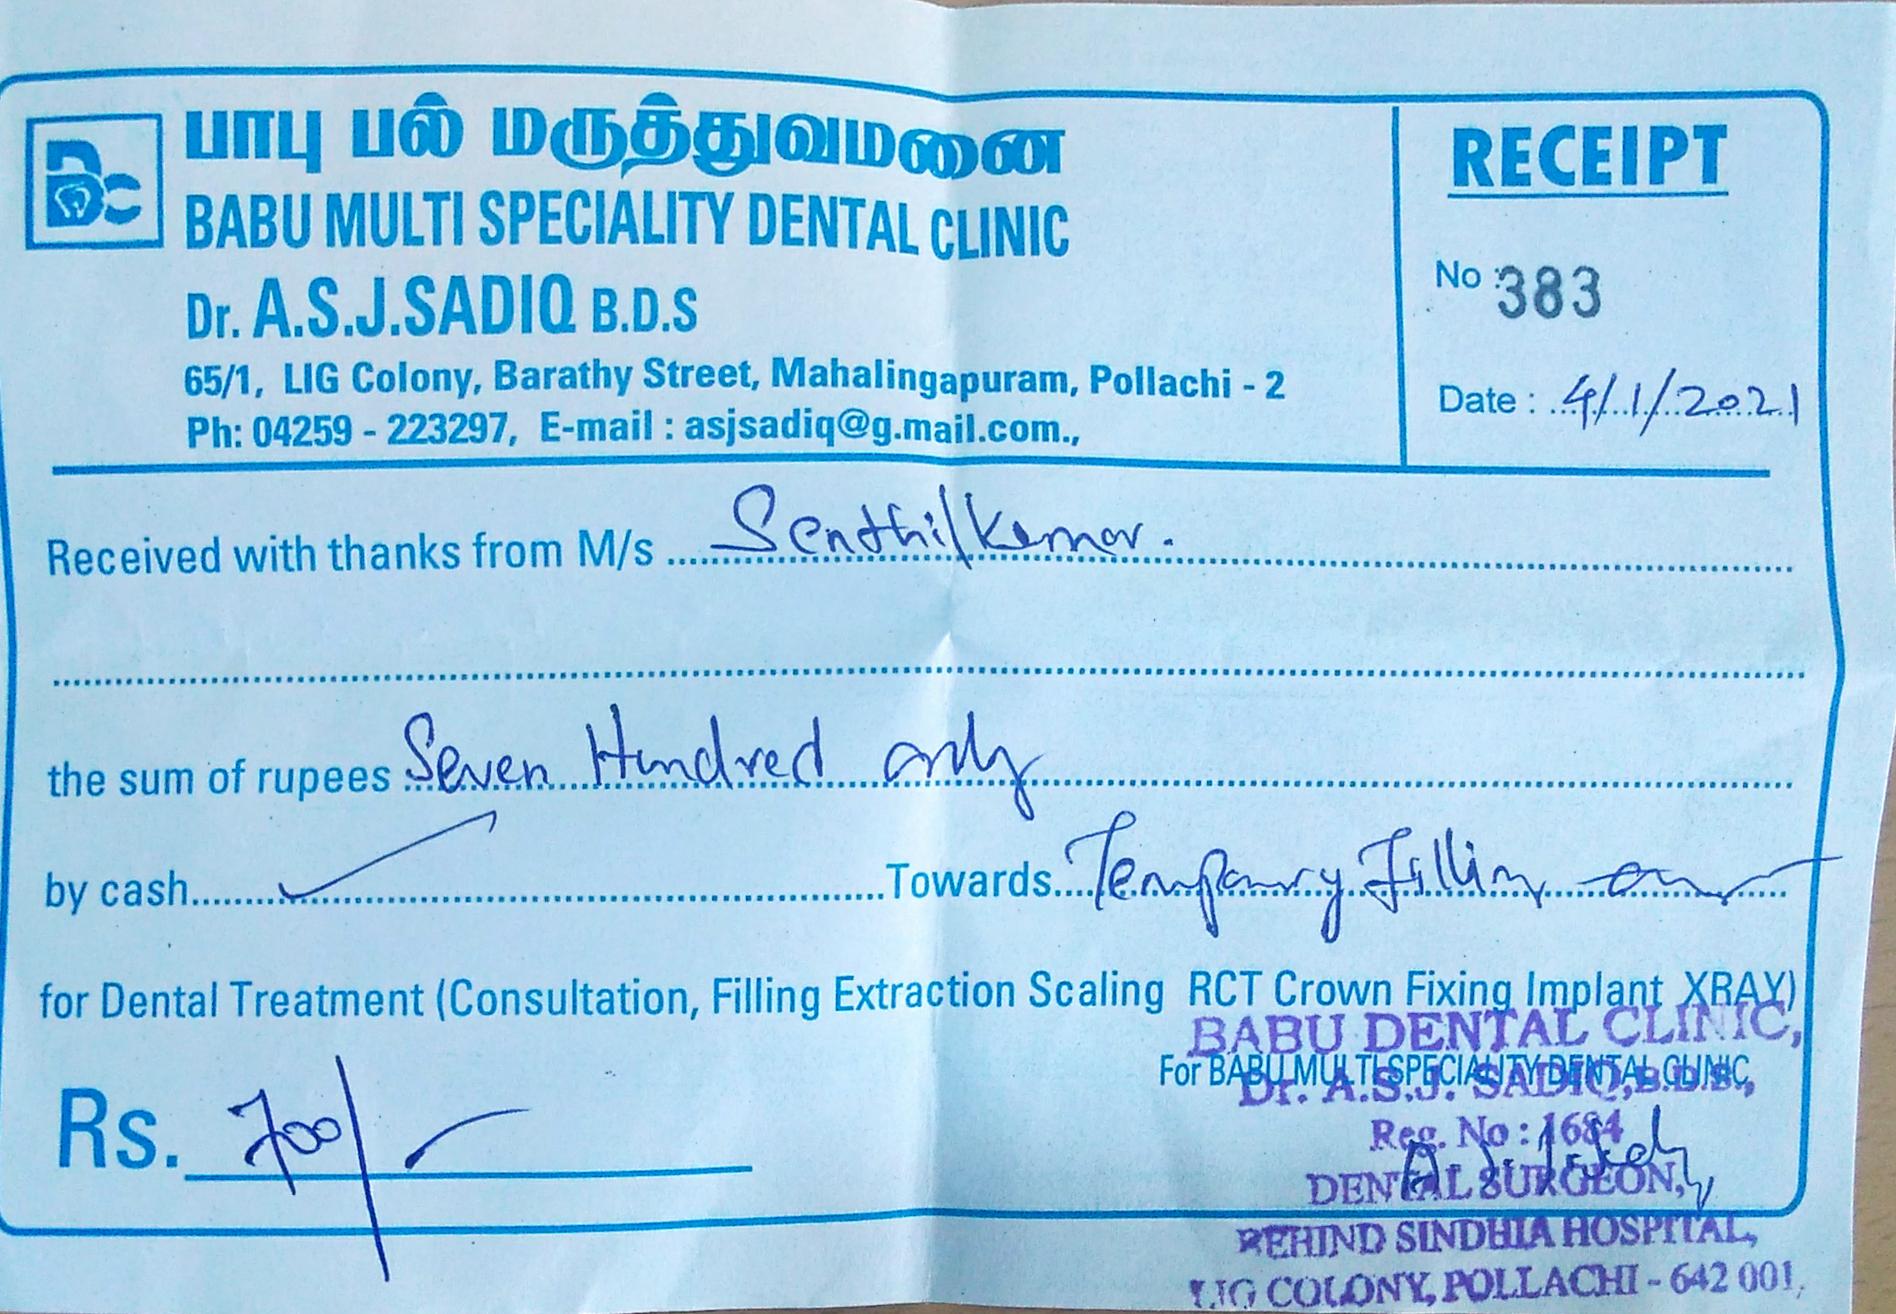 Bc
பாபு பல் மருத்துவமனை
BABU MULTI SPECIALITY DENTAL CLINIC
Dr. A.S.J.SADIQ B.D.S
65/1, LIG Colony, Barathy Street, Mahalingapuram, Pollachi - 2
Ph: 04259 - 223297, E-mail : asjsadiq@g.mail.com.,
RECEIPT
No : 383
Date : 4/1/2021
Received with thanks from M/s Senthilkumar.
the sum of rupees Seven Hundred only
by cash Towards Temporary Filling
for Dental Treatment (Consultation, Filling Extraction Scaling RCT Crown Fixing Implant XRAY)
BABU DENTAL CLINIC,
For BABU MULTI SPECIALITY DENTAL CLINIC,
Dr. A.S.J. SADIQ, B.D.S.,
Rs. 700/-
Reg. No : 1684
DENTAL SURGEON,
BEHIND SINDHIA HOSPITAL,
LIG COLONY, POLLACHI - 642 001.